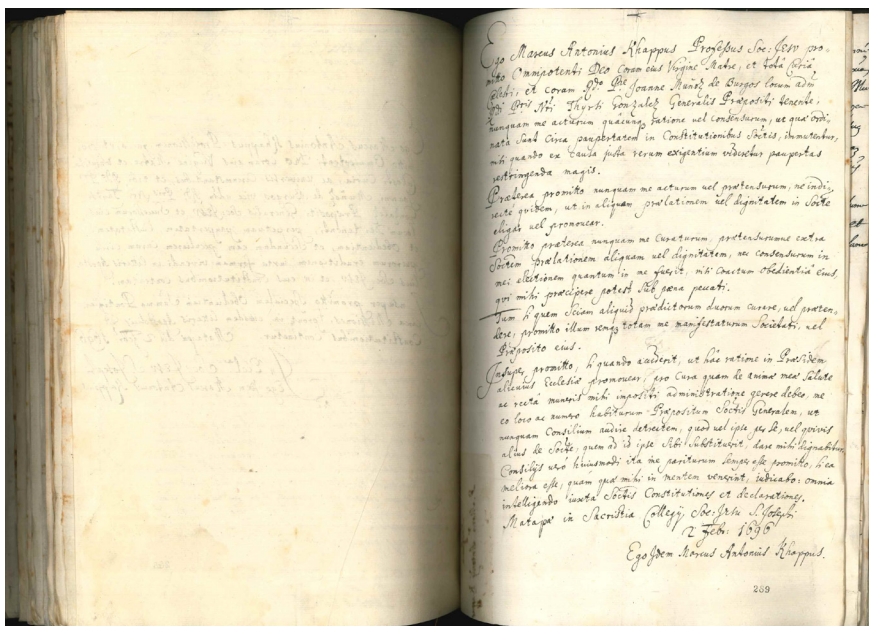 Ego Marcus Antonius Khappus Professus Soc: Jesu pro-
mitto Omnipotenti Deo coram eius Virgine Matre, et tota Curia
celesti, et coram Rdo. Pre. Joanne Muñoz de Burgos locum adm
Rdi Pris Nri Thyrsi Gonzalez Generalis Præpositi tenente,
nunquam me acturum quacunq ratione vel consensurum, ut quæ ordi-
nata sunt circa paupertatem in Constitutionibus Soctis, immutentur,
nisi quando ex causa justa rerum exigentium videretur paupertas
restringenda magis.
Præterea promitto nunquam me acturum vel prætensurum, ne indi-
recte quidem, ut in aliquam prælationem vel dignitatem in Socte
eligar vel promovear.
Promitto præterea nunquam me curaturum, prætensurumve extra
Soctem prælationem aliquam vel dignitatem, nec consensurum in
mei electionem quantum in me fuerit, nisi coactum obedientia eius,
qui mihi præcipere potest sub pæna peccati.
Tum si quem sciam aliquid prædictorum duorum curare, vel præten-
dere, promitto illum remq totam me manifestaturum Societati, vel
Præposito eius.
Insuper promitto, si quando acciderit, ut hac ratione in Præsidem
alicuius Ecclesiæ promovear, pro cura quam de animæ meæ salute
ac recta muneris mihi impositi administratione gerere debeo, me
eo loco ac numero habiturum Præpositum Soctis Generalem, ut
nunquam Consilium audire detrectem, quod vel ipse per se, vel quivis
alius de Socte, quem ad id ipse sibi substituerit, dare mihi dignabitur.
Consilijs vero huiusmodi ita me pariturum semper esse promitto, si ea
meliora esse, quam quæ mihi in mentem venerint, iudicabo: omnia
intelligendo iuxta Soctis Constitutiones et declarationes.
Matapæ in Sacristia Collegij Soc: Jesu S. Josephi
2 Febr: 1696
Ego Idem Marcus Antonius Khappus.
289